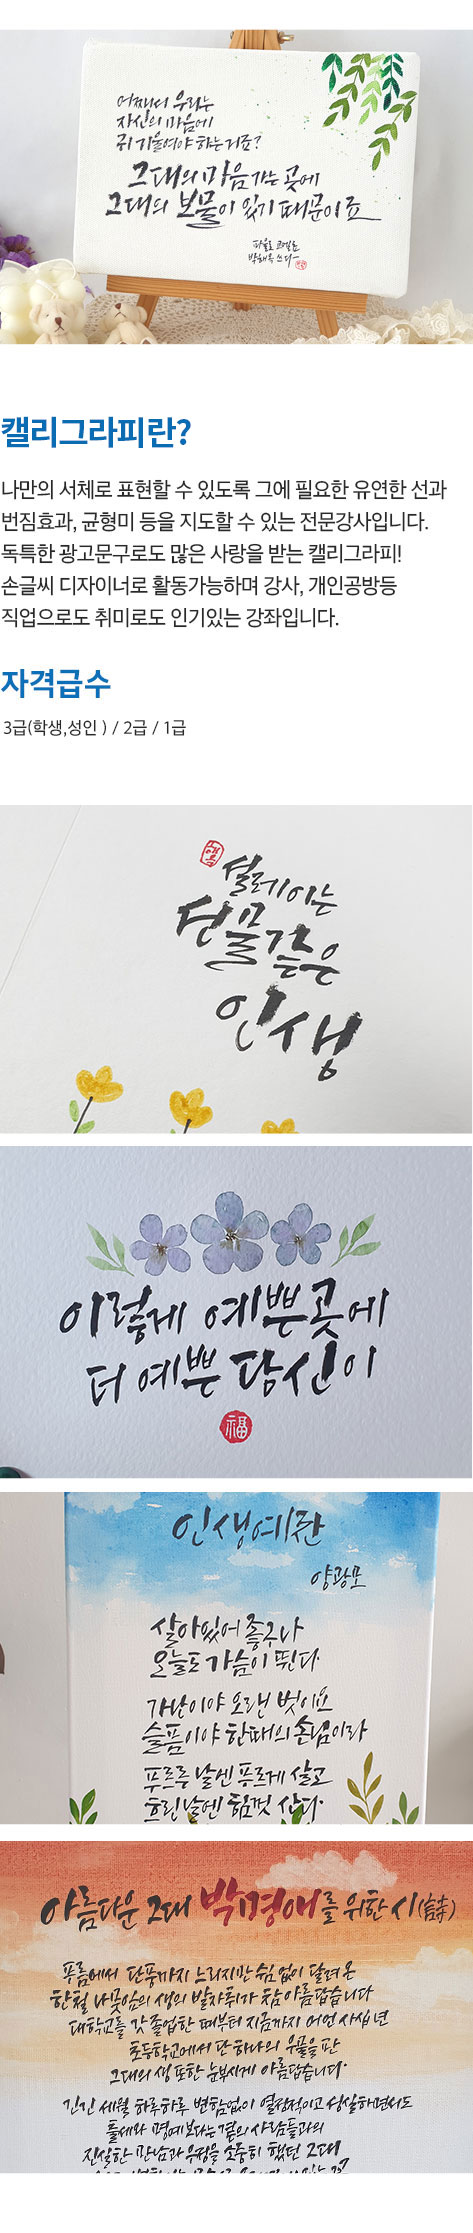 어째서 우리는
자신의 마음에
귀 기울여야 하는거죠?
그대의 마음 가는 곳에
그대의 보물이 있기 때문이죠
파울로 코엘료
쓰다
캘리그라피란?
나만의 서체로 표현할 수 있도록 그에 필요한 유연한 선과
번짐효과, 균형미 등을 지도할 수 있는 전문강사입니다.
독특한 광고문구로도 많은 사랑을 받는 캘리그라피!
손글씨 디자이너로 활동가능하며 강사, 개인공방등
직업으로도 취미로도 인기있는 강좌입니다.
자격급수
3급(학생,성인 ) / 2급 / 1급
설레이는
선물같은
인생
이렇게 예쁜곳에
더 예쁜 당신이
福
인생예찬
양광모
살아있어 좋구나
오늘도 가슴이 뛴다.
가난이야 오랜 벗이요
슬픔이야 한때의 손님이라
푸르른 날엔 푸르게 살고
흐린날엔 힘껏 산다.
아름다운 그대 박경애를 위한 시(詩)
푸름에서 단풍까지 느리지만 쉼없이 달려온
한철 나뭇잎의 생의 발자취가 참 아름답습니다
대학교를 갓 졸업한 때부터 지금까지 어언 사십 년
초등학교에서 단 하나의 우물을 판
그대의 생 또한 눈부시게 아름답습니다.
긴긴 세월 하루하루 변함없이 열정적이고 성실하면서도
틀세와 명예보다는 곁의 사람들과의
진실한 만남과 우정을 소중히 했던 그대